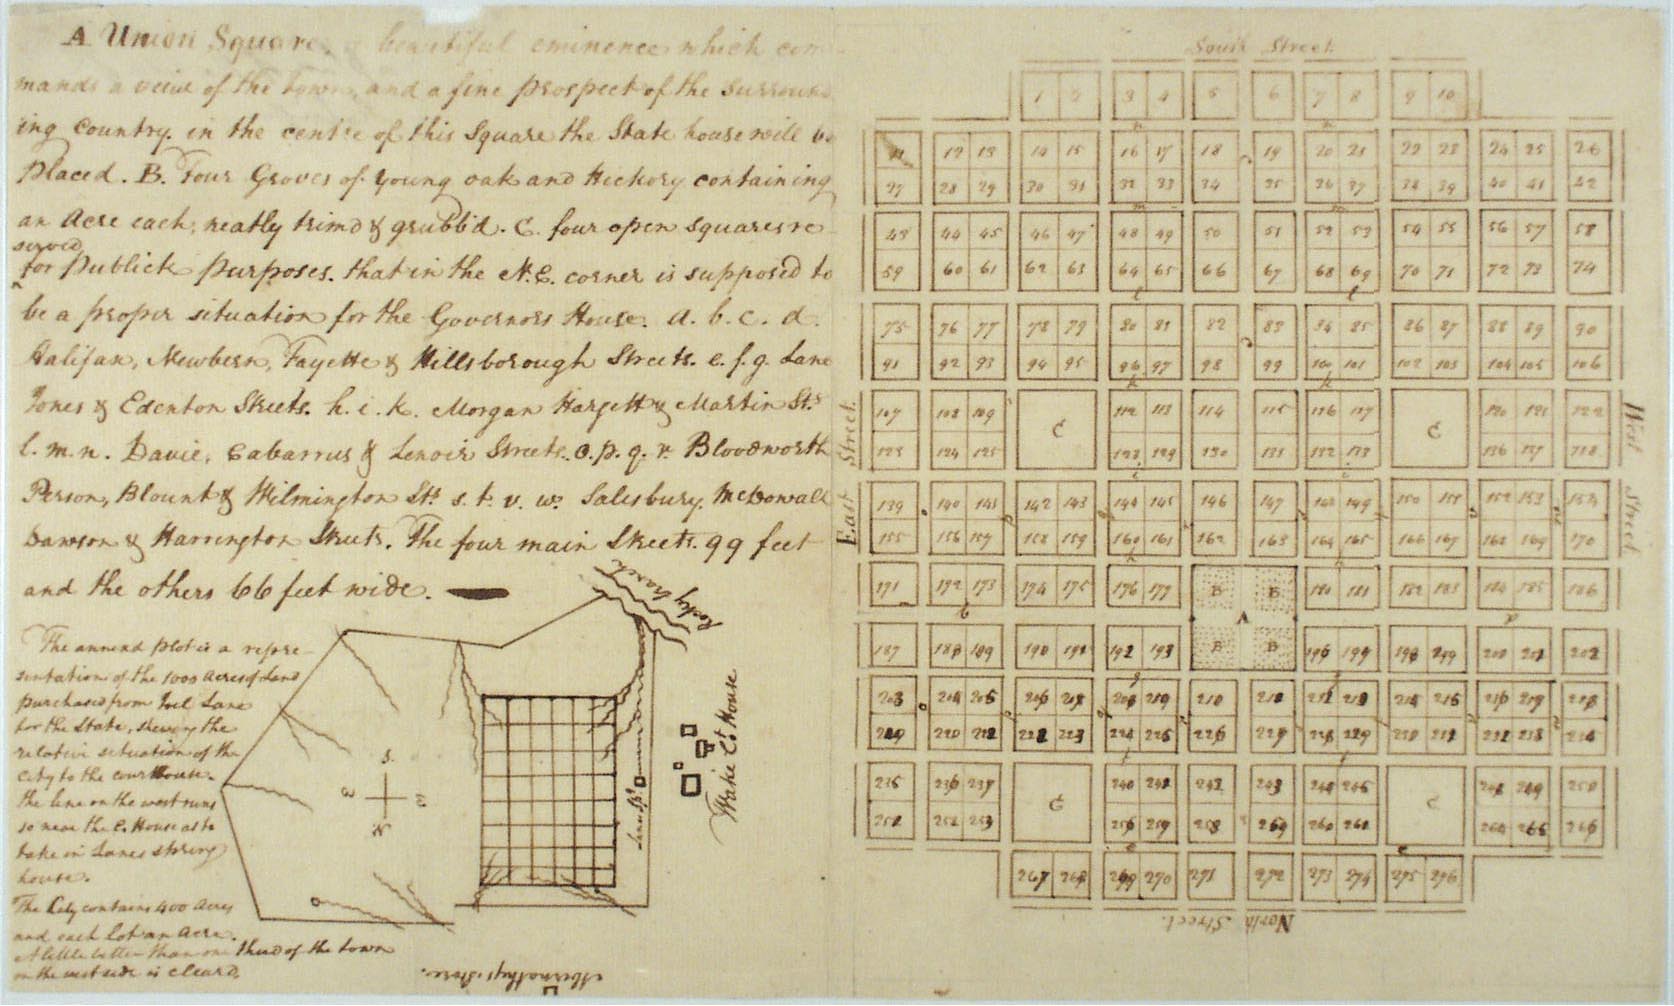 A Union Square, a beautiful eminence which com-
mands a view of the town, and a fine prospect of the surround
ing country. in the centre of this Square the State house will be
Placed. B. Four Groves of young oak and Hickory containing
an Acre each, neatly trim'd & grubb'd. C. four open squares re-
served
for Publick Purposes. that in the N.E. corner is supposed to
be a proper situation for the Governors House. a. b. c. d.
Halifax, Newbern, Fayette & Hillsborough Streets. e. f. g. Lane
Jones & Edenton Streets. h. i. k. Morgan Hargett & Martin Sts
l. m. n. Davie, Cabarrus & Lenoir Streets. o. p. q. r. Bloodworth
Person, Blount & Wilmington Sts s. t. v. w. Salesbury, McDowall
Dawson & Harrington Streets. The four main Streets. 99 feet
and the others 66 feet wide.
The annexd Plot is a repre-
sentation of the 1000 Acres of Land
purchased from Joel Lane
for the State, shewing the
relative situation of the
City to the court House.
the line on the west runs
so near the C. House as to
take in Lanes spring
house.
The City contains 400 Acres
and each Lot an Acre.
A little better than one third of the town
on the west side is cleard.
Rocky branch
S.
N
Wake Ct. House
Abernathys store.
South Street.
1 2 3 4 5 6 7 8 9 10
11 12 13 14 15 16 17 18 19 20 21 22 23 24 25 26
27 28 29 30 31 32 33 34 35 36 37 38 39 40 41 42
43 44 45 46 47 48 49 50 51 52 53 54 55 56 57 58
59 60 61 62 63 64 65 66 67 68 69 70 71 72 73 74
75 76 77 78 79 80 81 82 83 84 85 86 87 88 89 90
91 92 93 94 95 96 97 98 99 100 101 102 103 104 105 106
107 108 109 C 112 113 114 115 116 117 C 120 121 122
123 124 125 128 129 130 131 132 133 136 137 138
139 140 141 142 143 144 145 146 147 148 149 150 151 152 153 154
155 156 157 158 159 160 161 162 163 164 165 166 167 168 169 170
171 172 173 174 175 176 177 B B 180 181 182 183 184 185 186
A
187 188 189 190 191 192 193 B B 196 197 198 199 200 201 202
203 204 205 206 207 208 209 210 211 212 213 214 215 216 217 218
219 220 221 222 223 224 225 226 227 228 229 230 231 232 233 234
235 236 237 C 240 241 242 243 244 245 C 248 249 250
251 252 253 256 257 258 259 260 261 264 265 266
267 268 269 270 271 272 273 274 275 276
North Street.
East Street.
West Street